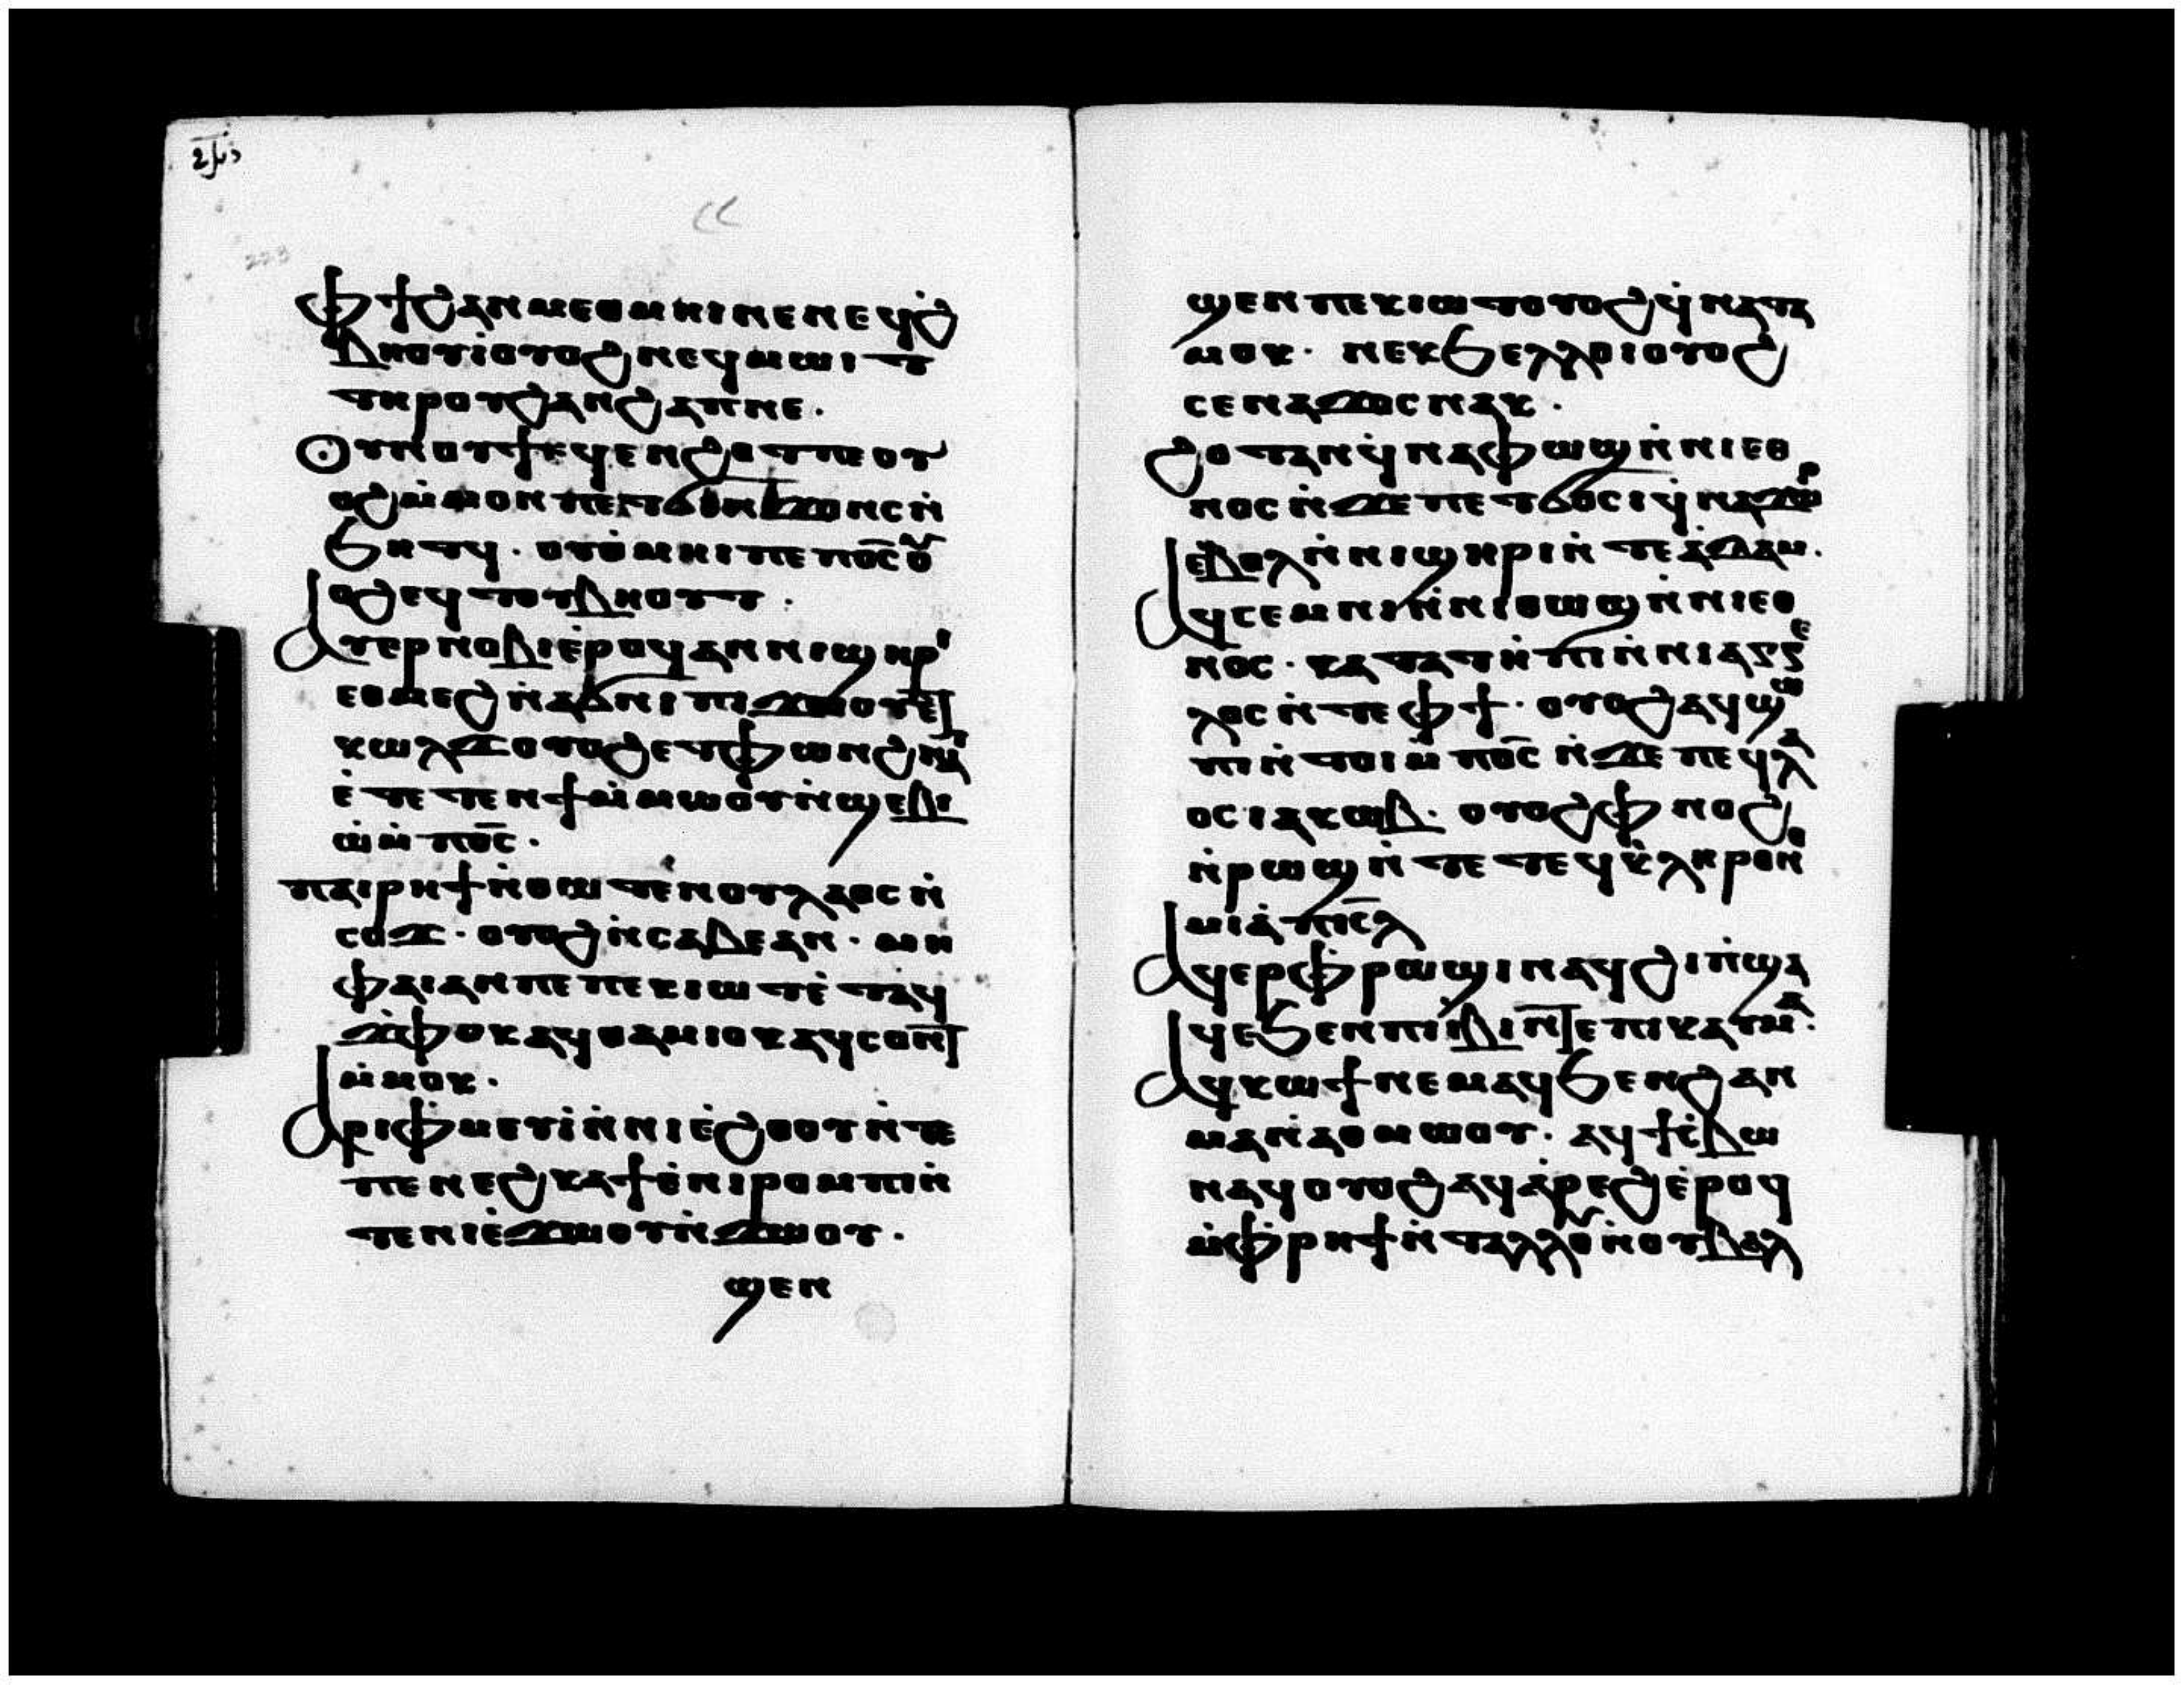 ⲫϯ ϩⲁⲛⲙⲉⲑⲙⲏⲓ ⲛⲉ ⲛⲉϥϩ̇
ⲃⲏⲟⲩⲓ̇ ⲟⲩⲟϩ ⲛⲉϥⲙⲱⲓⲧ
ⲧⲏⲣⲟⲩ ϩⲁⲛϩⲁⲡ ⲛⲉ.
Ⲟⲩⲛⲟⲩϯ ⲉϥⲉⲛϩⲟⲧ ⲡⲉ ⲟⲩ
ⲟϩ ⲙ̇ⲙⲟⲛ ⲡⲉⲧϭⲓⲛϫⲟⲛⲥ ⲛ̇
ϧⲏⲧϥ. ⲟⲩⲑ̇ⲙⲏⲓ ⲡⲉ ⲡⲟ̅ⲥ̅ ⲟⲩ
ⲟϩ ⲉϥⲧⲟⲩⲃⲏⲟⲩⲧ.
Ⲁⲩⲉⲣⲛⲟⲃⲓ ⲉ̇ⲣⲟϥ ⲁⲛ ⲛⲓϣⲏⲣⲓ
ⲉⲑⲙⲉϩ ⲛ̇ⲁϭⲛⲓ ⲡⲓϫⲱⲟⲩ ⲉⲧ
ⲕⲱⲗϫ ⲟⲩⲟϩ ⲉⲧⲫⲱⲛϩ ⲛⲁⲓ
ⲉ̇ⲧⲉⲧⲉⲛϯ ⲙ̇ⲙⲱⲟⲩ ⲛ̇ϣⲉⲃⲓ
ⲱ̇ ⲙ̇ⲡⲟ̅ⲥ̅.
ⲡⲁⲓⲣⲏϯ ⲛ̇ⲑⲱⲧⲉⲛ ⲟⲩⲗⲁⲟⲥ ⲛ̇
ⲥⲟϫ. ⲟⲩⲟϩ ⲛ̇ⲥⲁⲃⲉ ⲁⲛ. ⲙⲏ
ⲫⲁⲓ ⲁⲛ ⲡⲉ ⲡⲉⲕⲓⲱⲧ ⲉ̇ⲧⲁϥ
ϫ̇ⲫⲟⲕ ⲁϥⲑⲁⲙⲓⲟⲕ ⲁϥⲥⲟⲛⲧ
ⲙ̇ⲙⲟⲕ.
Ⲁⲣⲓⲫⲙⲉⲩⲓ̇ ⲛ̇ⲛⲓⲉ̇ϩⲟⲟⲩ ⲛ̇ⲧⲉ
ⲡⲉⲛⲉϩ ⲕⲁϯ ⲉ̇ⲛⲓⲣⲟⲙⲡⲓ ⲛ̇
ⲧⲉ ⲛⲓⲉ̇ϫⲱⲟⲩ ⲛ̇ϫⲱⲟⲩ.
ϣⲉⲛ
ϣⲉⲛ ⲡⲉⲕⲓⲱⲧ ⲟⲩⲟϩ ϥ̇ⲛⲁⲧⲁ
ⲙⲟⲕ. ⲛⲉⲕϧⲉⲗⲗⲟⲓ ⲟⲩⲟϩ
ⲥⲉⲛⲁϫⲟⲥ ⲛⲁⲕ.
Ϩⲟⲧⲁⲛ ϥ̇ⲛⲁⲫⲱϣ ⲛ̇ⲛⲓⲉⲑ
ⲛⲟⲥ ⲛ̇ϫⲉ ⲡⲉⲧϭⲟⲥⲓ ϥ̇ⲛⲁϫⲱⲣ
ⲉ̇ⲃⲟⲗ ⲛ̇ⲛⲓϣⲏⲣⲓ ⲛ̇ⲧⲉ ⲁ̇ⲇⲁⲙ.
Ⲁϥⲥⲉⲙⲛⲓ ⲛ̇ⲛⲓⲑⲱϣ ⲛ̇ⲛⲓⲉⲑ
ⲛⲟⲥ. ⲕⲁⲧⲁ ⲧ̇ⲏⲡⲓ ⲛ̇ⲛⲓⲁⲅⲅⲉ
ⲗⲟⲥ ⲛ̇ⲧⲉ ⲫϯ. ⲟⲩⲟϩ ⲁϥϣⲱ
ⲡⲓ ⲛ̇ⲧⲟⲓ ⲙ̇ⲡⲟ̅ⲥ̅ ⲛ̇ϫⲉ ⲡⲉϥⲗⲁ
ⲟⲥ ⲓⲁⲕⲱⲃ. ⲟⲩⲟϩ ⲫ̇ⲛⲟϩ
ⲛ̇ⲣⲱϣ ⲛ̇ⲧⲉ ⲧⲉϥⲕ̇ⲗⲏⲣⲟⲛⲟ
ⲙⲓⲁ̇ ⲡⲓⲥ̅ⲗ̅
Ⲁϥⲉⲣⲫⲣⲱϣⲓ ⲛⲁϥ ϩⲓ ⲡ̇ϣⲁ
ϥⲉ ϧⲉⲛ ⲡⲓⲓ̇ⲃⲓ ⲛ̅ⲧⲉ ⲡⲓⲕⲁⲩⲙⲁ.
Ⲁϥⲕⲱϯ ⲛⲉⲙⲁϥ ϧⲉⲛ ϩⲁⲛ
ⲙⲁ ⲛ̇ⲁⲑⲙⲱⲟⲩ. ⲁϥϯⲥ̇ⲃⲱ
ⲛⲁϥ ⲟⲩⲟϩ ⲁϥⲁ̇ⲣⲉϩ ⲉ̇ⲣⲟϥ
ⲙ̇ⲫ̇ⲣⲏϯ ⲛ̇ⲧⲁⲗⲗⲟⲩ ⲛ̇ⲟⲩⲃⲁⲗ